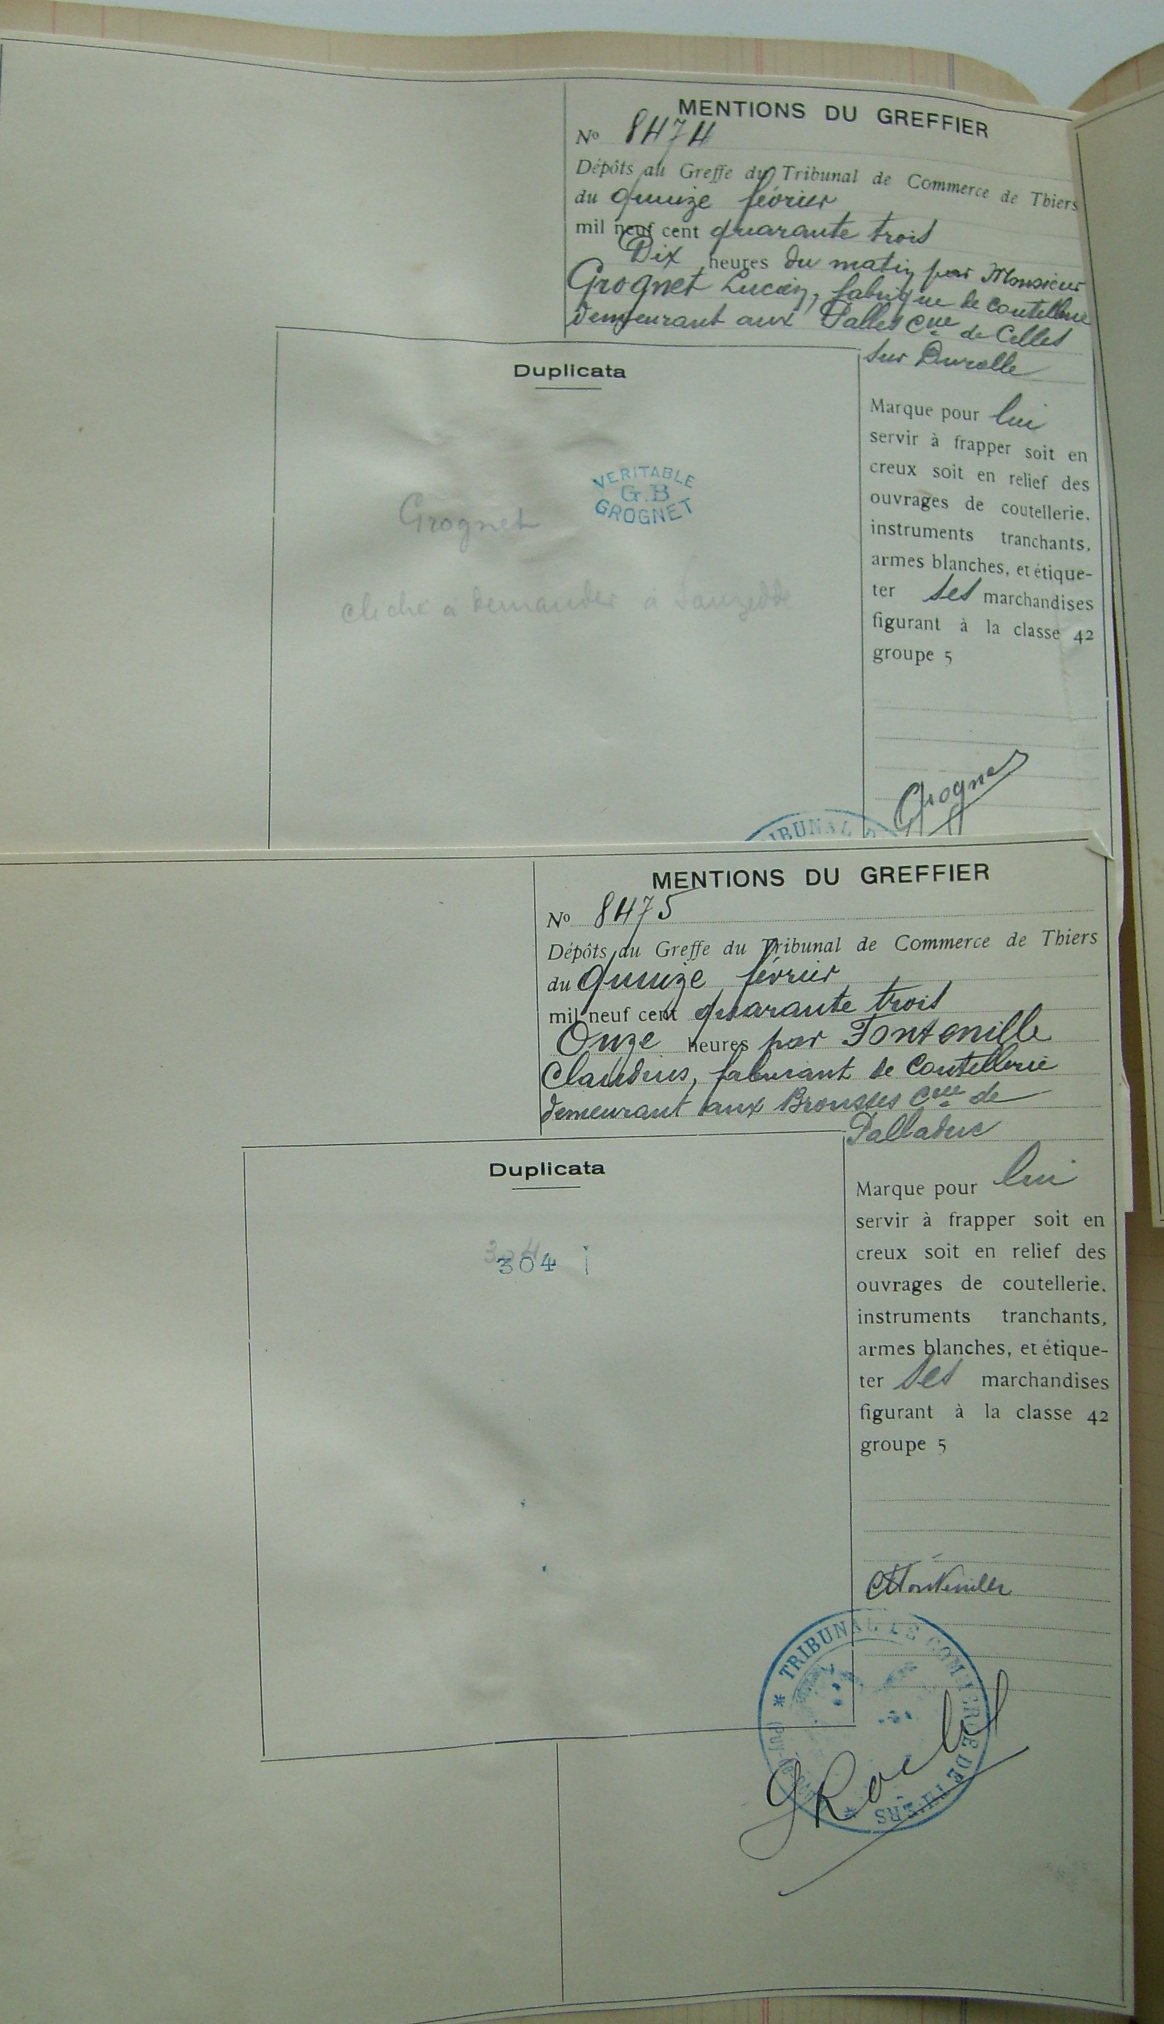 MENTIONS DU GREFFIER
No 8474
Dépôts au Greffe du Tribunal de Commerce de Thiers
du quinze février
mil neuf cent quarante trois
Dix heures du matin par Monsieur
Grognet Lucien, fabrique de coutellerie
demeurant aux Salles Cne de Celles
sur Durolle
Duplicata
VERITABLE
G.B
GROGNET
Grognet
cliché a demander a Sauzedde
Marque pour lui
servir à frapper soit en
creux soit en relief des
ouvrages de coutellerie,
instruments tranchants,
armes blanches, et étique-
ter ses marchandises
figurant à la classe 42
groupe 5
Grognet
TRIBUNAL D
MENTIONS DU GREFFIER
No 8475
Dépôts du Greffe du Tribunal de Commerce de Thiers
du quinze février
mil neuf cent quarante trois
Onze heures par Fontenille
Claudius, fabricant de coutellerie
demeurant aux Brousses Cne de
Palladuc
Duplicata
304
304
Marque pour lui
servir à frapper soit en
creux soit en relief des
ouvrages de coutellerie,
instruments tranchants,
armes blanches, et étique-
ter ses marchandises
figurant à la classe 42
groupe 5
Fontenille
* TRIBUNAL DE COMMERCE DE THIERS *
(Puy-de-Dôme)